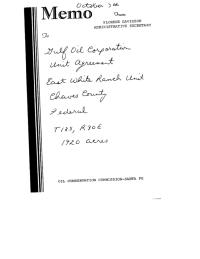 October 366
Memo
From
FLORENE DAVIDSON
ADMINISTRATIVE SECRETARY
To
Gulf Oil Corporation
Unit Agreement
East White Ranch Unit
Chaves County
Federal
T12S, R30E
1920 acres
OIL CONSERVATION COMMISSION-SANTA FE